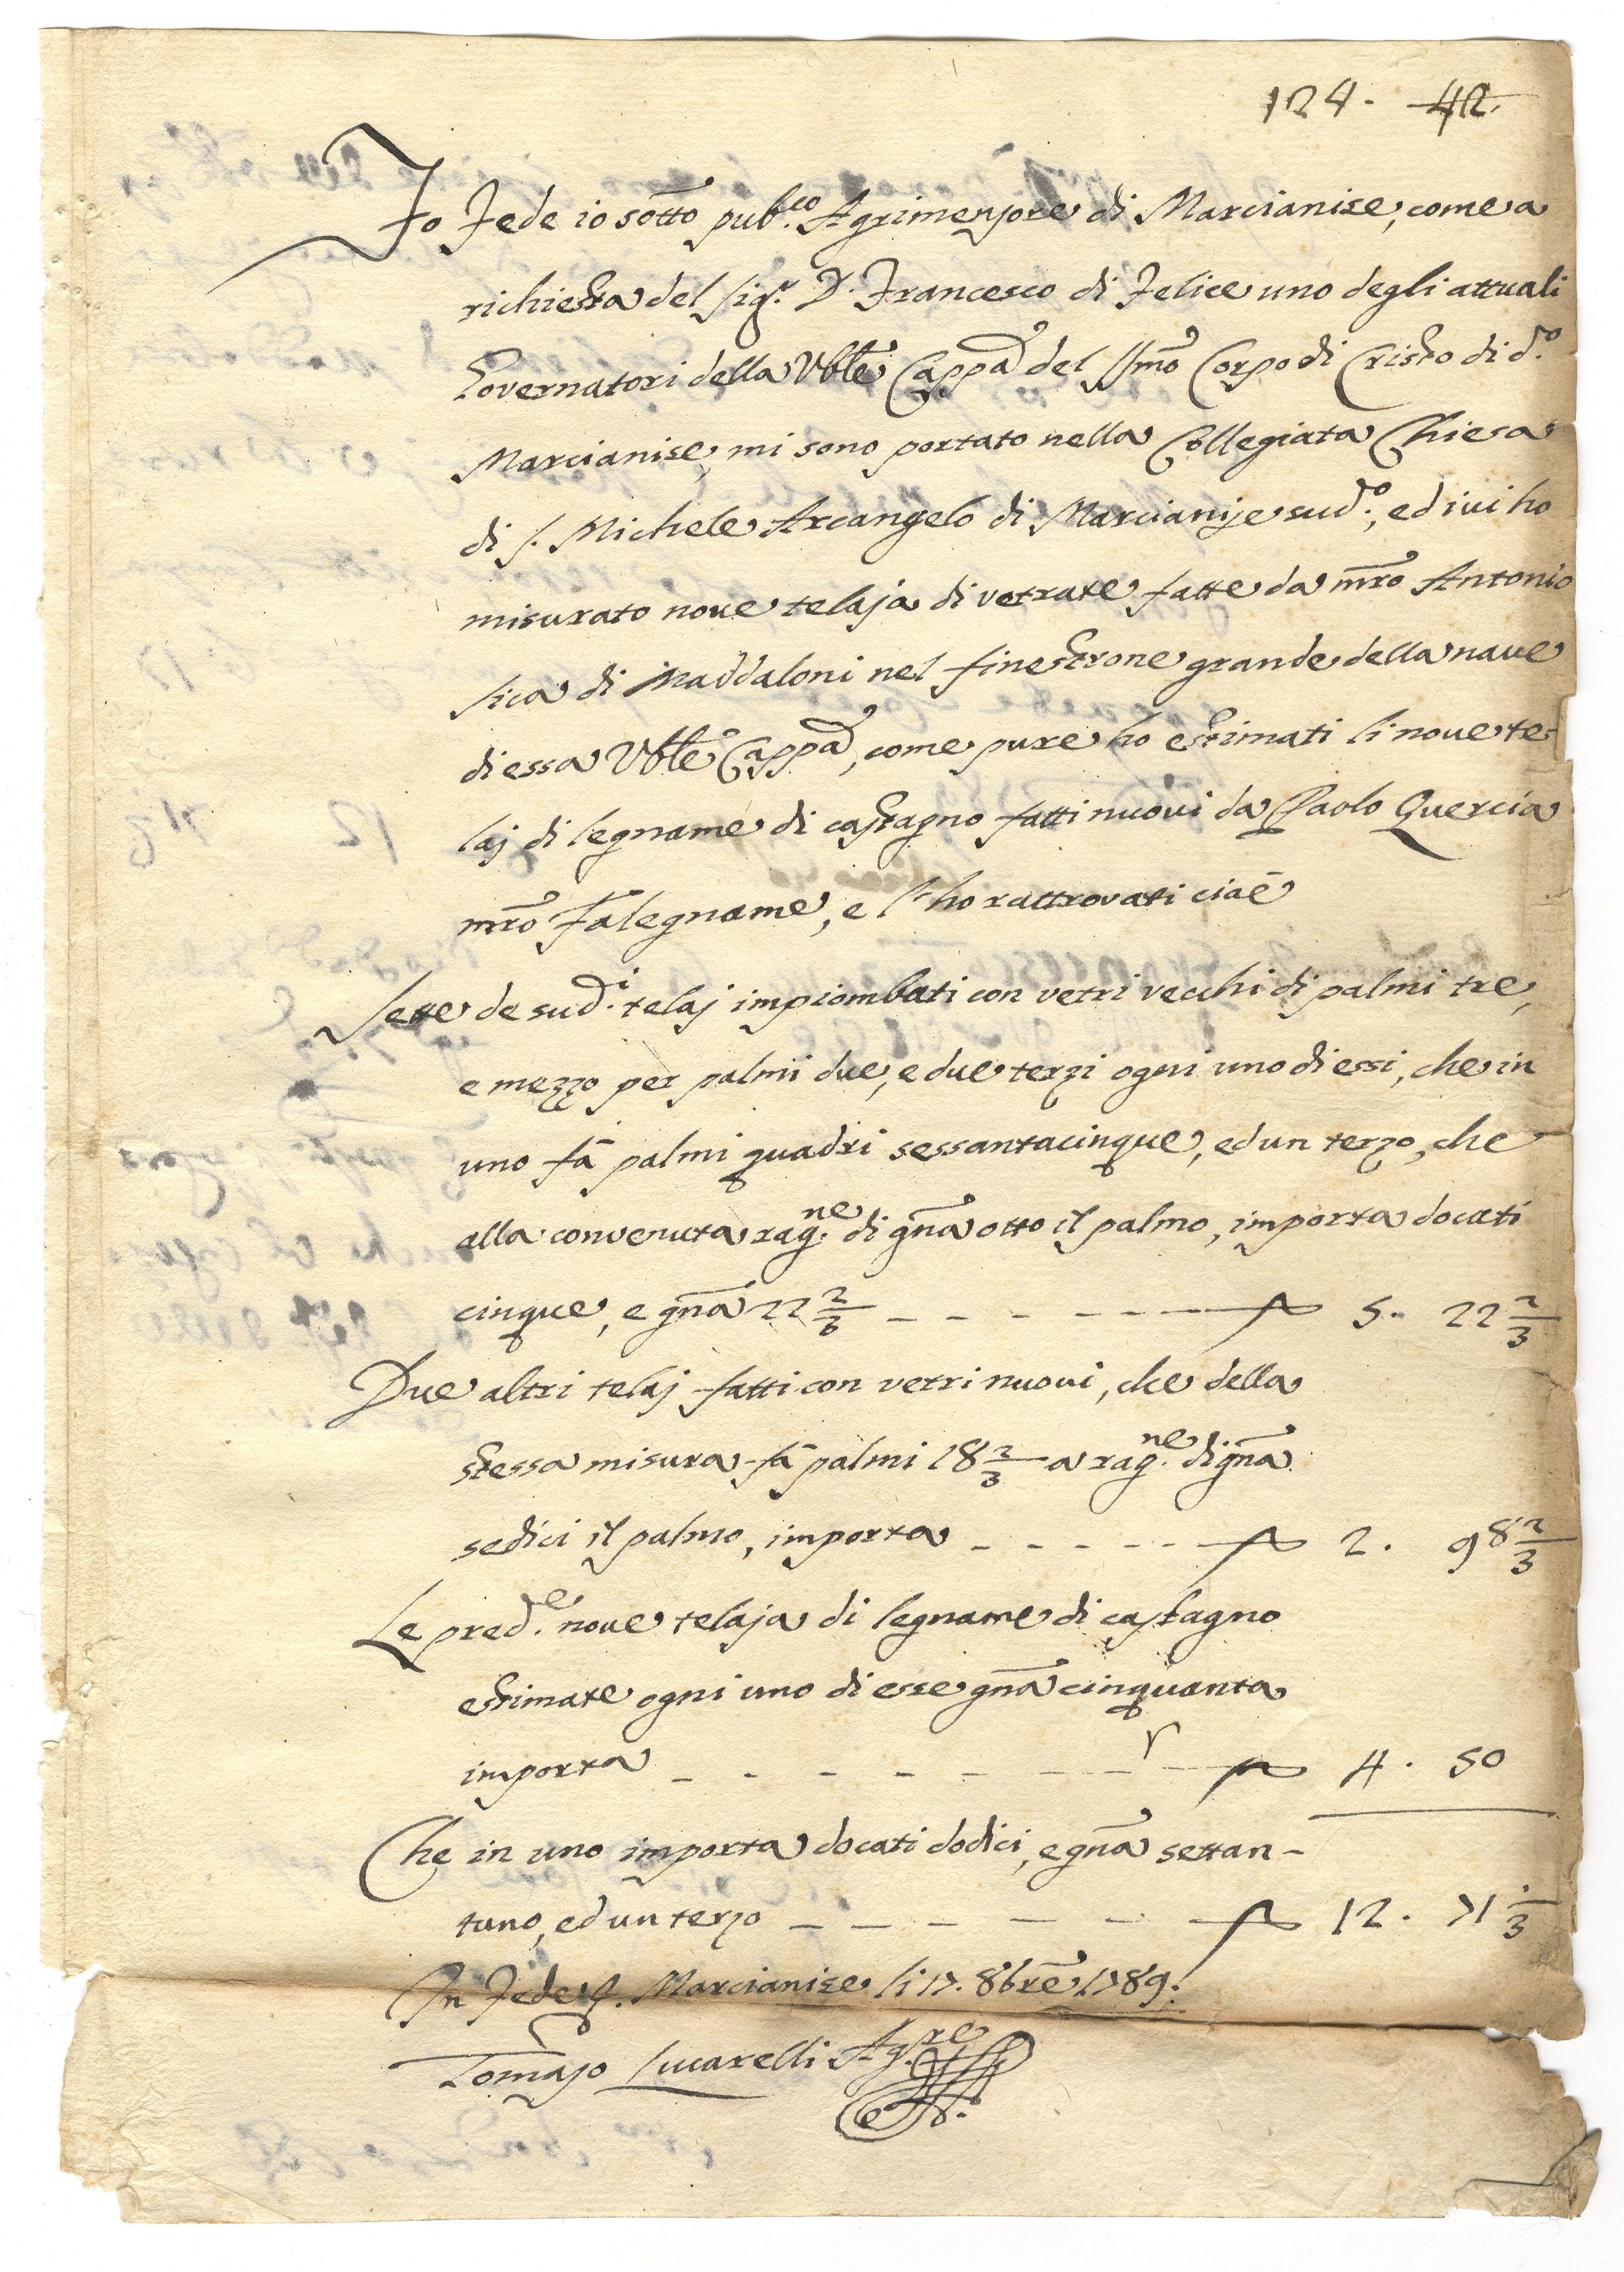 124. 42.
Fo Fede io sotto pub.co Agrimensore di Marcianise, come a
richiesta del Sig.r D. Francesco di Felice uno degli attuali
Governatori della Vble Cappa del SSmo Corpo di Cristo di d.o
Marcianise, mi sono portato nella Collegiata Chiesa
di S. Michele Arcangelo di Marcianise sud.o, ed ivi ho
misurato nove telaja di vetrate fatte da mro Antonio
Sica di Maddaloni nel finestrone grande della nave
di essa Vble Cappa, come pure ho estimati li nove te-
laj di legname di castagno fatti nuovi da Paolo Quercia
mro Falegname, e l'ho rattrovati cioè
Sette de sud.i telaj impiombati con vetri vecchi di palmi tre,
e mezzo per palmi due, e due terzi ogni uno di essi, che in
uno fà palmi quadri sessantacinque, ed un terzo, che
alla convenuta rag.ne di gna otto il palmo, importa docati
cinque, e gna 22 2/3 - - - - - - - 5. 22 2/3
Due altri telaj fatti con vetri nuovi, che della
stessa misura fà palmi 18 2/3 a rag.ne di gna
sedici il palmo, importa - - - - - 2. 98 2/3
Le pred.e nove telaja di legname di castagno
estimate ogni uno di esse gna cinquanta
importa - - - - - - - - 4. 50
Che in uno importa docati dodici, e gna settan-
tuno, ed un terzo - - - - - - 12. 71 1/3
In Fede &. Marcianise li 17. 8bre 1789.
Tomaso Lucarelli Ag.re